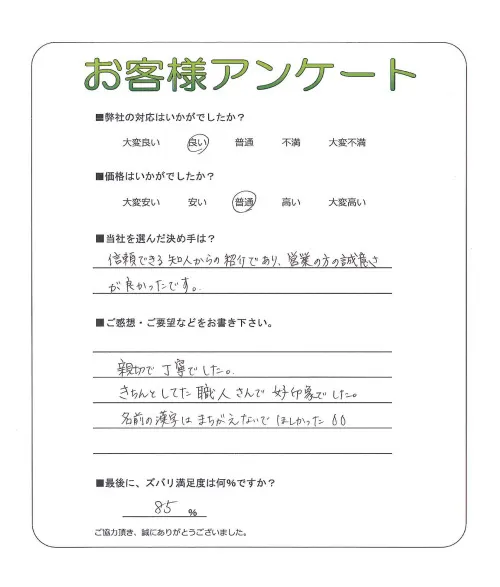 お客様アンケート
■弊社の対応はいかがでしたか？
大変良い 良い 普通 不満 大変不満
■価格はいかがでしたか？
大変安い 安い 普通 高い 大変高い
■当社を選んだ決め手は？
信頼できる知人からの紹介であり、営業の方の誠意さ
が良かったです。
■ご感想・ご要望などをお書き下さい。
親切で丁寧でした。
きちんとしてた職人さんで好印象でした。
名前の漢字はまちがえないでほしかった
■最後に、ズバリ満足度は何%ですか？
85 %
ご協力頂き、誠にありがとうございました。